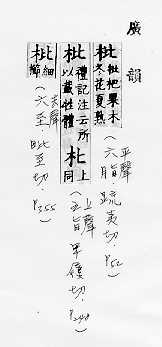 廣韻
枇 枇杷果木
冬花夏熟
平聲
(六脂 · 毗夷切 · P52)
枇 禮記注云所
以載牲體 朼 上同
上聲
(五旨 · 卑履切 · P248)
枇 細櫛
去聲
(六至 · 毗至切 · P355)